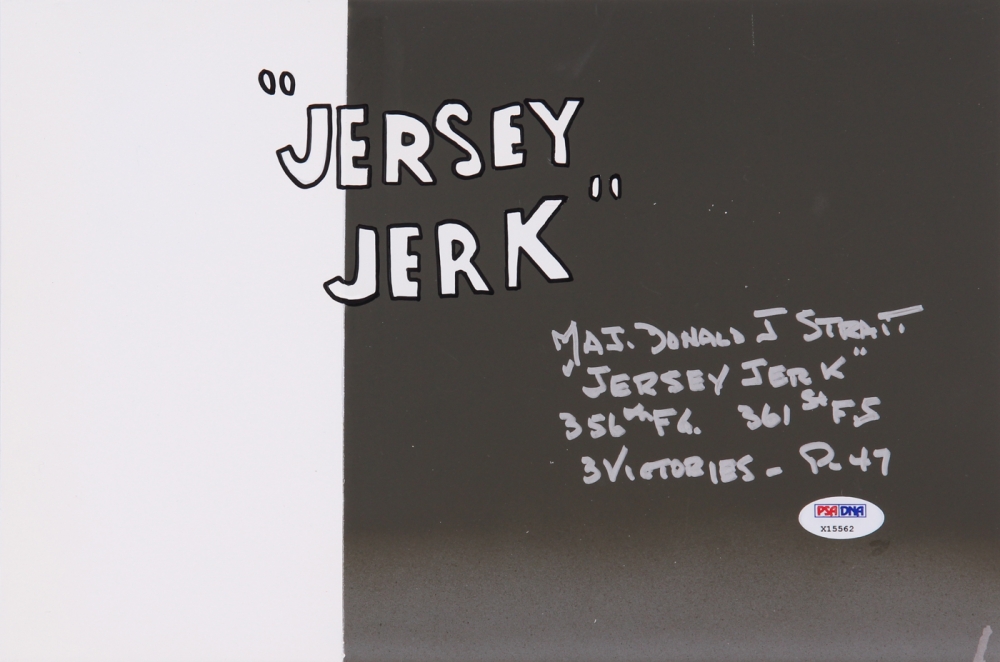 "JERSEY
JERK"
MAJ. DONALD J STRAIT
"JERSEY JERK"
356th FG. 361st FS
3 VICTORIES - P-47
PSA DNA
X15562